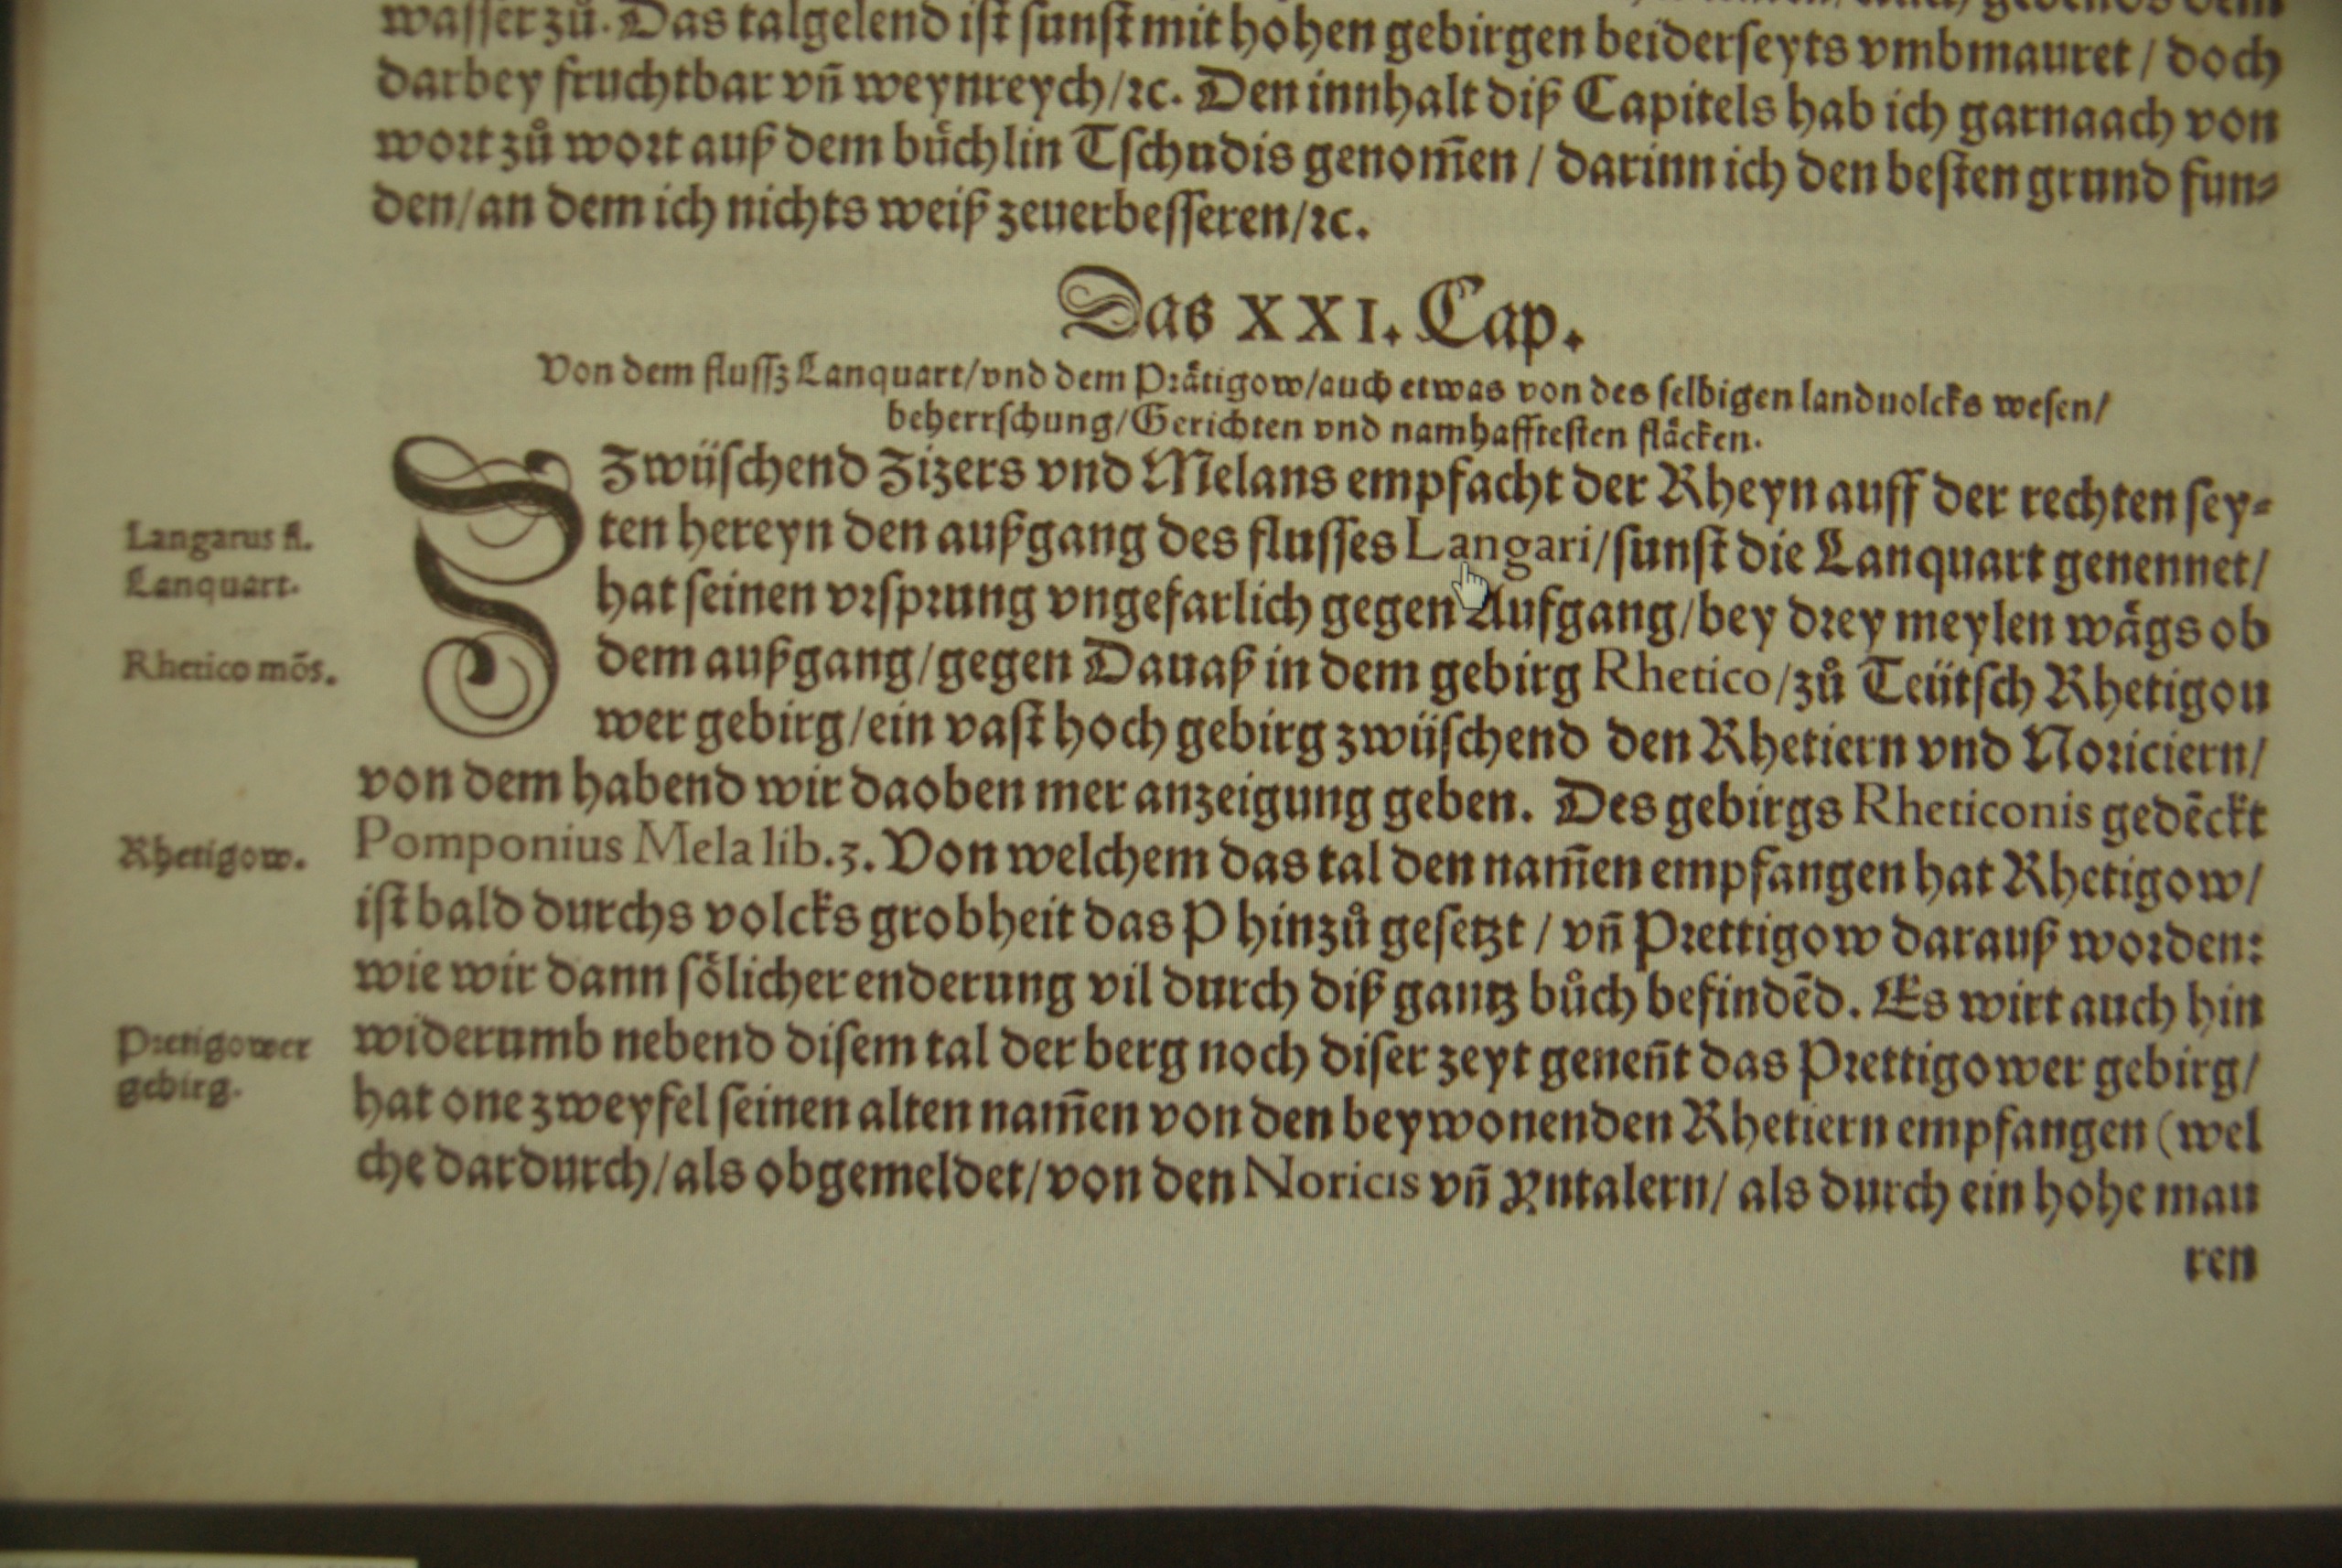 wasser zů. Das talgelend ist sunst mit hohen gebirgen beiderseyts vmbmauret / doch
darbey fruchtbar vñ weynreych/ꝛc. Den innhalt diß Capitels hab ich garnaach von
wort zů wort auß dem bůchlin Tschudis genom̃en / darinn ich den besten grund fun⸗
den/an dem ich nichts weiß zeuerbesseren/ꝛc.
Das XXI. Cap.
Von dem flussz Lanquart/vnd dem Prätigow/auch etwas von des selbigen landuolcks wesen/
beherrschung/Gerichten vnd namhafftesten fläcken.
Zwüschend Zizers vnd Melans empfacht der Rheyn auff der rechten sey⸗
ten hereyn den außgang des flusses Langari/sunst die Lanquart genennet/
Langarus fl.
Lanquart.
hat seinen vrsprung vngefarlich gegen Aufgang/bey drey meylen wägs ob
dem außgang/gegen Dauaß in dem gebirg Rhetico/zů Teütsch Rhetigou
Rhetico mõs.
wer gebirg/ein vast hoch gebirg zwüschend den Rhetiern vnd Noriciern/
von dem habend wir daoben mer anzeigung geben. Des gebirgs Rheticonis gedẽckt
Pomponius Mela lib.3. Von welchem das tal den nam̃en empfangen hat Rhetigow/
Rhetigow.
ist bald durchs volcks grobheit das P hinzů gesetzt / vñ Prettigow darauß worden:
wie wir dann sölicher enderung vil durch diß gantz bůch befindẽd. Es wirt auch hin
widerumb nebend disem tal der berg noch diser zeyt geneñt das Prettigower gebirg/
Pretigower
gebirg.
hat one zweyfel seinen alten nam̃en von den beywonenden Rhetiern empfangen (wel
che dardurch/als obgemeldet/von den Noricis vñ Yntalern/ als durch ein hohe mau
ren